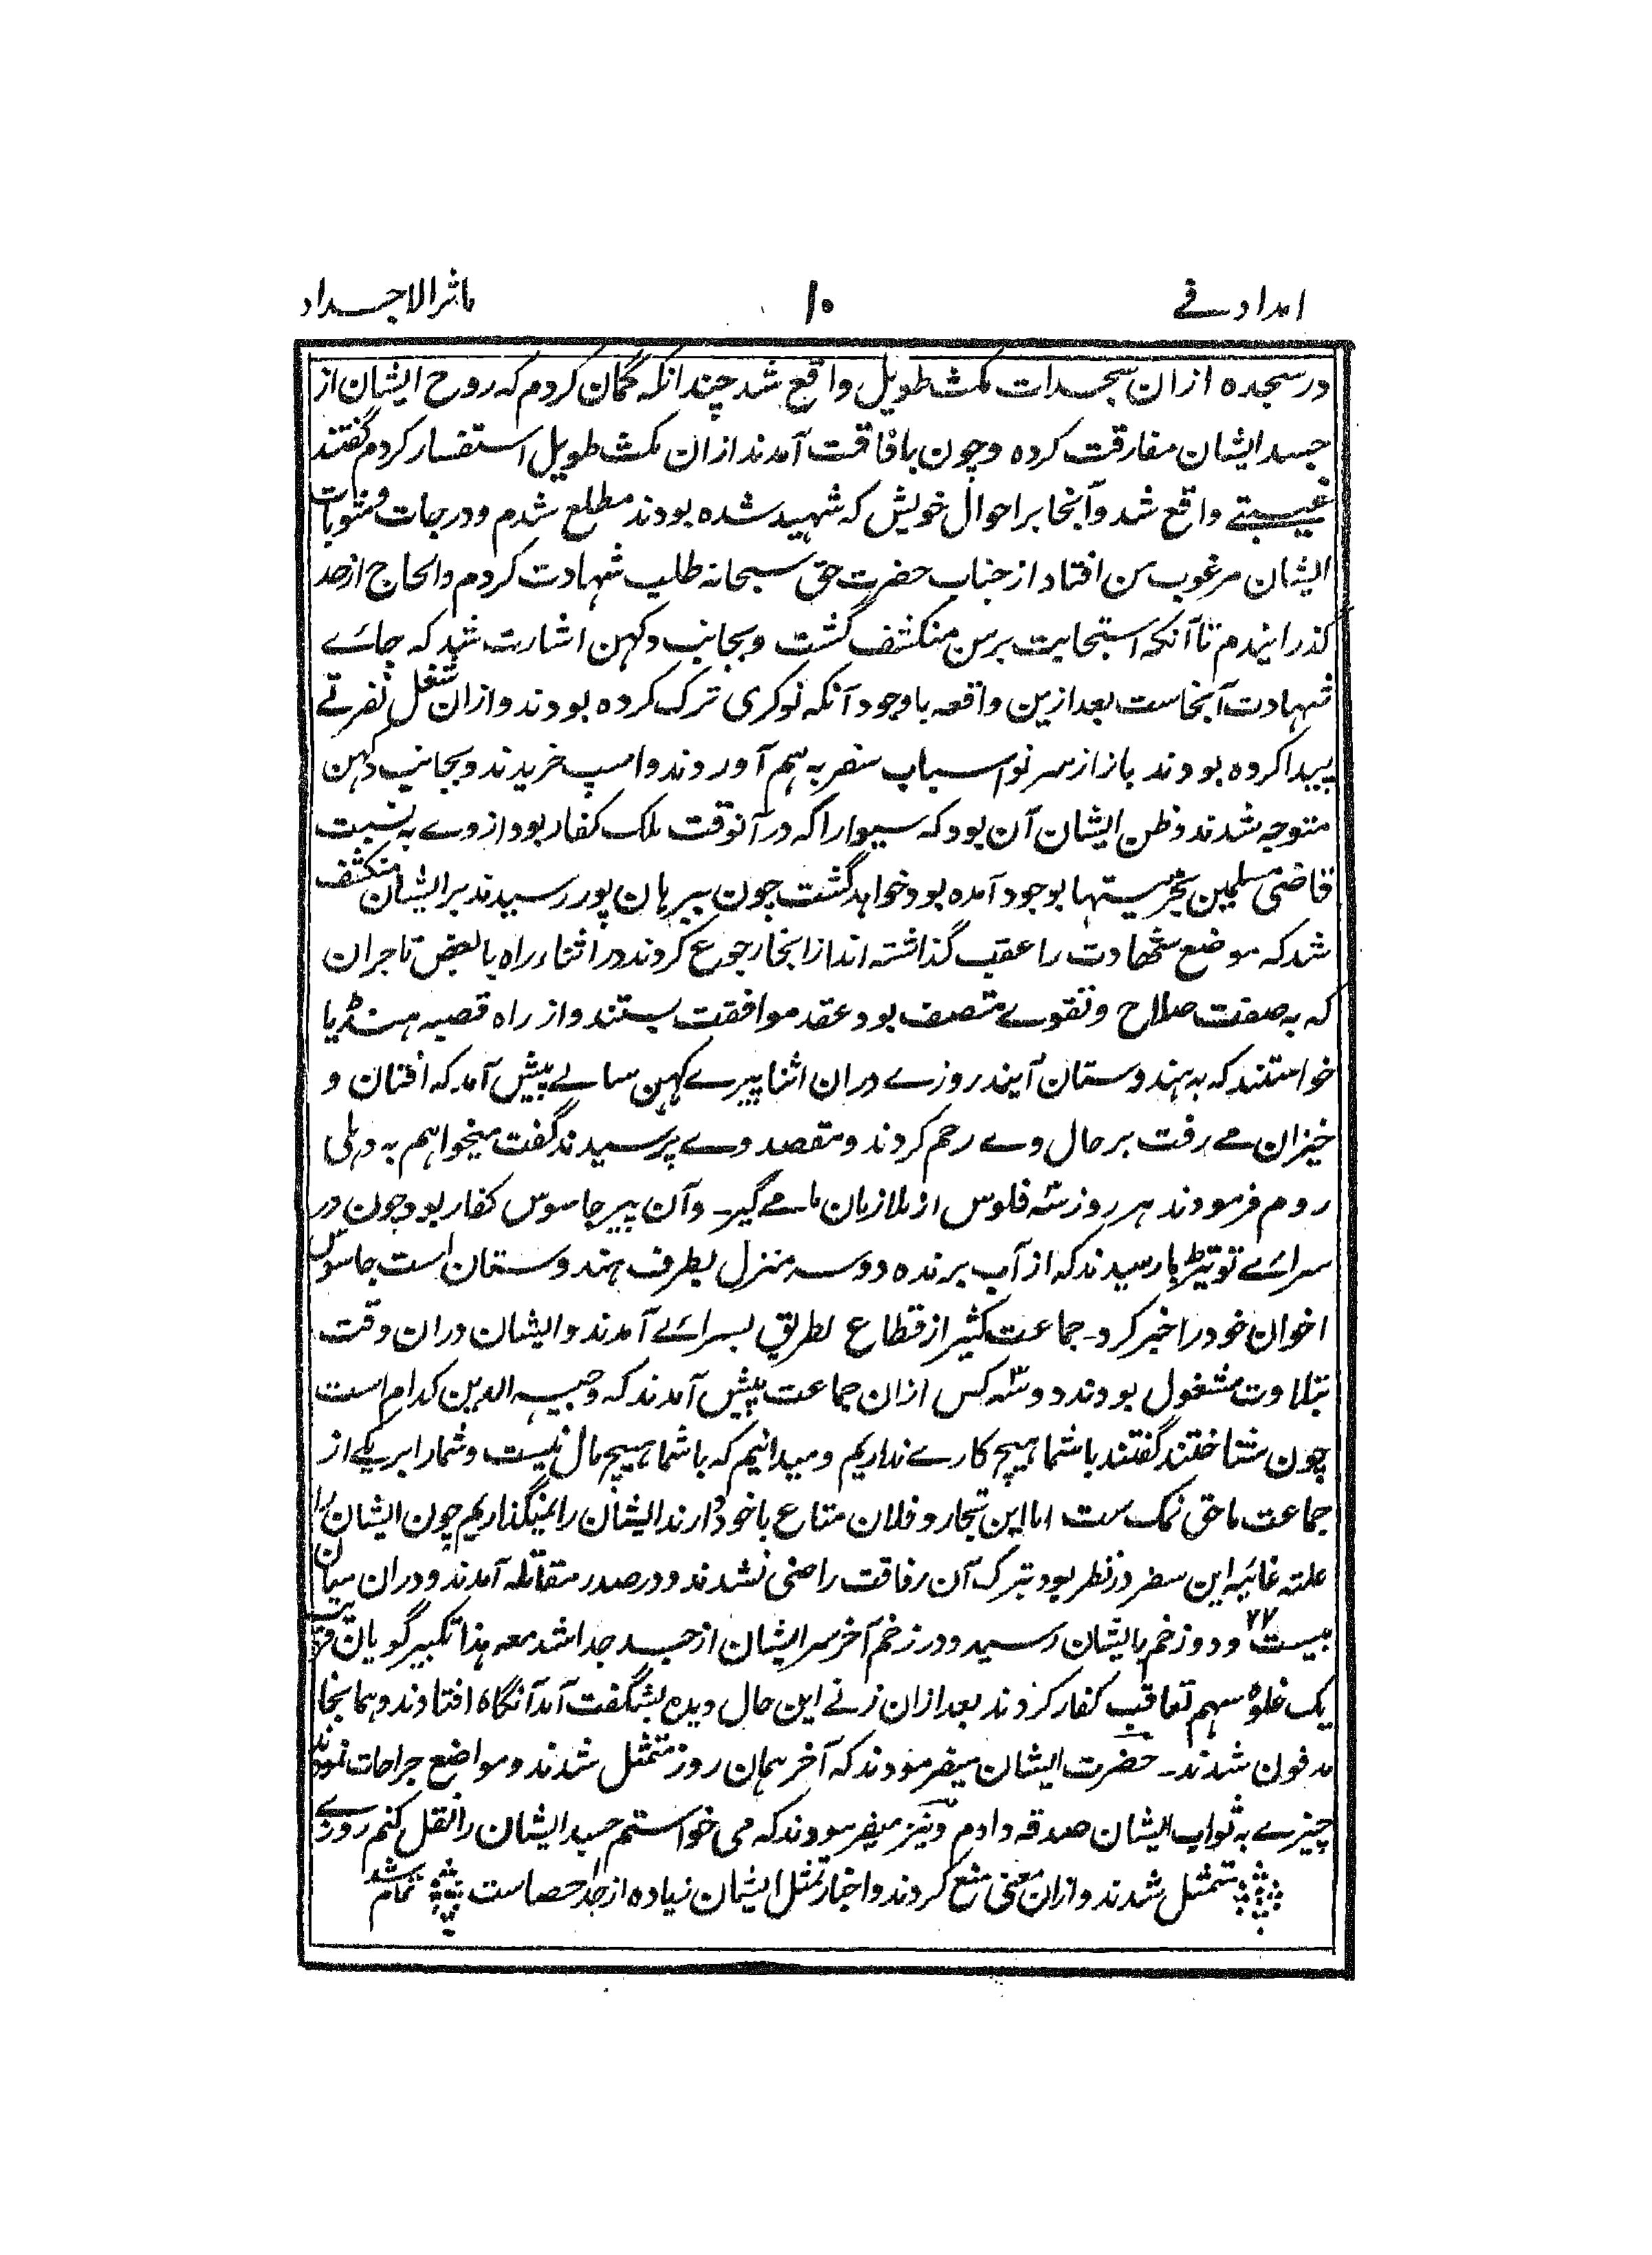 امداد فے ۱۰ ماثر الاجداد
در سجده ازان سجدات مکث طویل واقع شد چندانکه گمان کردم که روح ایشان از
جسد ایشان مفارقت کرده وچون بافاقت آمدند ازان مکث طویل استفسار کردم گفتند
غیبتے واقع شد وآنجا بر احوال خویش که شهید شده بودند مطلع شدم ودرجات ومثوبات
ایشان مرغوب من افتاد از جناب حضرت حق سبحانه طلب شهادت کردم والحاح از حد
گذرانیدم تا آنکه استجابت بر من منکشف گشت وبجانب دکهن اشارت شد که جائے
شهادت آنجاست بعد ازین واقعه با وجود آنکه نوکری ترک کرده بودند وازان شغل نفرتے
پیدا کرده بودند باز از سر نو اسباب سفر بهم آوردند واسپ خریدند وبجانب دکهن
متوجه شدند وظن ایشان آن بود که سیوارا که در آنوقت ملک کفار بود از وے به نسبت
قاضی مسلمین بیحرمتیها بوجود آمده بود خواهد گشت چون ببرهان پور رسیدند بر ایشان منکشف
شد که موضع شهادت را عقب گذاشته اند از انجا رجوع کردند در اثناء راه با بعض تاجران
که به صفت صلاح وتقوے متصف بود عقد موافقت بستند واز راه قصبه هنڈیا
خواستند که به هندوستان آیند روزے دران اثنا پیرے کهن سالے پیش آمد که افتان و
خیزان مے رفت بر حال وے رحم کردند ومقصد وے پرسیدند گفت میخواهم به دهلی
روم فرمودند هر روز سه فلوس از ملازمان ما مے گیر۔ وآن پیر جاسوس کفار بود چون در
سرائے نونبڑیا رسیدند که از آب نربده دو سه منزل بطرف هندوستان است جاسوس
اخوان خود را خبر کرد۔ جماعت کثیر از قطاع لطریق بسرائے آمدند وایشان دران وقت
بتلاوت مشغول بودند دو سه کس ازان جماعت پیش آمدند که وجیه الدین کدام است
چون شناختند گفتند با شما هیچ کارے نداریم ومیدانیم که با شما هیچ مال نیست وشما را بر یکے از
جماعت ما حق نمک ست اما این تجار وفلان متاع با خود دارند ایشان را نمیگذاریم چون ایشان را
علته غائیه این سفر در نظر بود بترک آن رفاقت راضی نشدند ودر صدد مقاتله آمدند ودران میان
بیست ودو زخم بایشان رسید ودر زخم آخر سر ایشان از جسد جدا شد معه هذا تکبیر گویان
یک غلوه سهم تعاقب کفار کردند بعد ازان زنے این حال دیده بشگفت آمد آنگاه افتادند وهمانجا
مدفون شدند۔ حضرت ایشان میفرمودند که آخر همان روز متمثل شدند ومواضع جراحات نمودند
چیزے به ثواب ایشان صدقه دادم ونیز میفرمودند که می خواستم جسد ایشان را نقل کنم روزے
متمثل شدند وازان معنی منع کردند واخبار تمثل ایشان زیاده از حد احصا است تمام شد